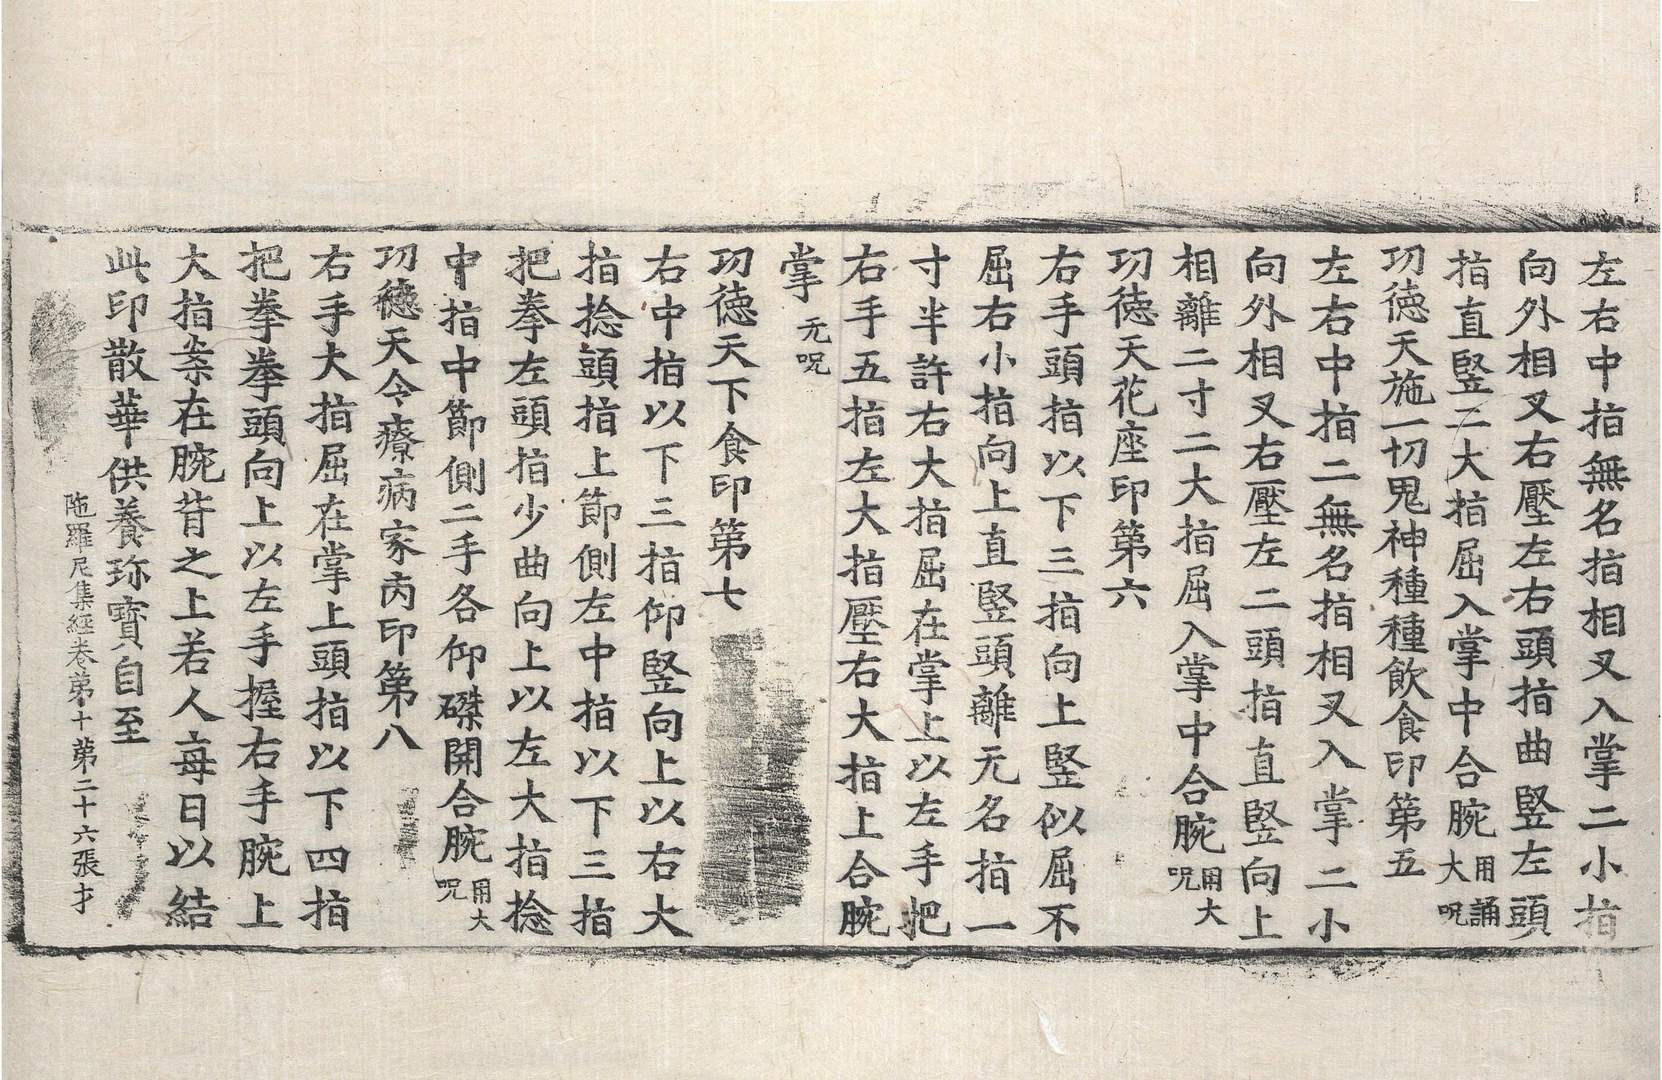 左右中指無名指相叉入掌二小指
向外相叉右壓左右頭指曲竪左頭
指直竪二大指屈入掌中合腕用誦大呪
功徳天施一切鬼神種種飲食印第五
左右中指二無名指相叉入掌二小
向外相叉右壓左二頭指直竪向上
相離二寸二大指屈入掌中合腕用大呪
功徳天花座印第六
右手頭指以下三指向上竪似屈不
屈右小指向上直竪頭離无名指一
寸半許右大指屈在掌上以左手把
右手五指左大指壓右大指上合腕
掌无呪
功徳天下食印第七
右中指以下三指仰竪向上以右大
指捻頭指上節側左中指以下三指
把拳左頭指少曲向上以左大指捻
中指中節側二手各仰磔開合腕用大呪
功徳天令療病家内印第八
右手大指屈在掌上頭指以下四指
把拳拳頭向上以左手握右手腕上
大指案在腕背之上若人每日以結
此印散華供養珎寳自至
陁羅尼集經卷苐十 苐二十六張 才